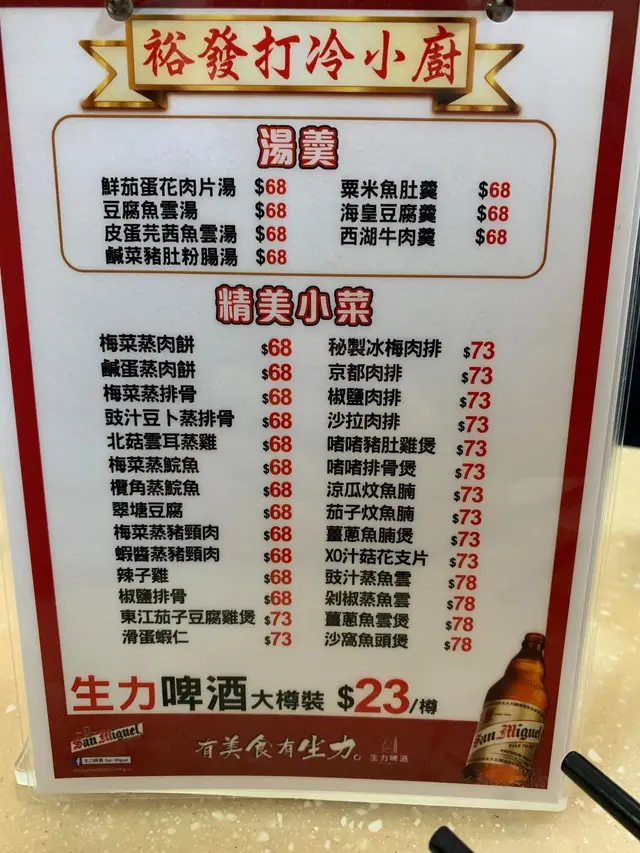 裕發打冷小廚
湯羹
鮮茄蛋花肉片湯 $68
豆腐魚雲湯 $68
皮蛋芫茜魚雲湯 $68
鹹菜豬肚粉腸湯 $68
粟米魚肚羹 $68
海皇豆腐羹 $68
西湖牛肉羹 $68
精美小菜
梅菜蒸肉餅 $68
鹹蛋蒸肉餅 $68
梅菜蒸排骨 $68
豉汁豆卜蒸排骨 $68
北菇雲耳蒸雞 $68
梅菜蒸鯇魚 $68
欖角蒸鯇魚 $68
翠塘豆腐 $68
梅菜蒸豬頸肉 $68
蝦醬蒸豬頸肉 $68
辣子雞 $68
椒鹽排骨 $68
東江茄子豆腐雞煲 $73
滑蛋蝦仁 $73
秘製冰梅肉排 $73
京都肉排 $73
椒鹽肉排 $73
沙拉肉排 $73
啫啫豬肚雞煲 $73
啫啫排骨煲 $73
涼瓜炆魚腩 $73
茄子炆魚腩 $73
薑蔥魚腩煲 $73
XO汁菇花支片 $73
豉汁蒸魚雲 $78
剁椒蒸魚雲 $78
薑蔥魚雲煲 $78
沙窩魚頭煲 $78
生力啤酒大樽裝 $23/樽
San Miguel
生力啤酒 San Miguel
有美食有生力。
生力啤酒
San Miguel